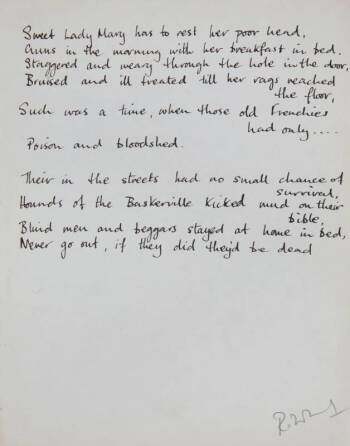 Sweet Lady Mary has to rest her poor head,
Crums in the morning with her breakfast in bed.
Staggered and weary through the hole in the door,
Bruised and ill treated till her rags reached
the floor,
Such was a time, when those old Frenchies
had only....
Poison and bloodshed.
Their in the streets had no small chance of
survival,
Hounds of the Baskerville kicked mud on their
bible,
Blind men and beggars stayed at home in bed,
Never go out, if they did they'd be dead